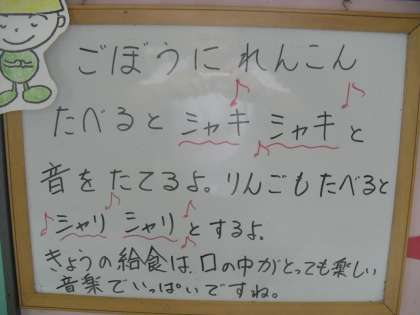 ごぼうに れんこん
たべると シャキ シャキと
音を たてるよ。りんごも たべると
シャリ シャリ とするよ。
きょうの給食は、口の中がとっても楽しい
音楽でいっぱいですね。